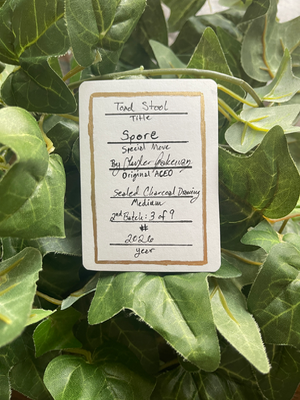 Toad Stool
Title
Spore
Special Move
By
Original ACEO
Sealed Charcoal Drawing
Medium
2nd Batch: 3 of 9
#
2026
year